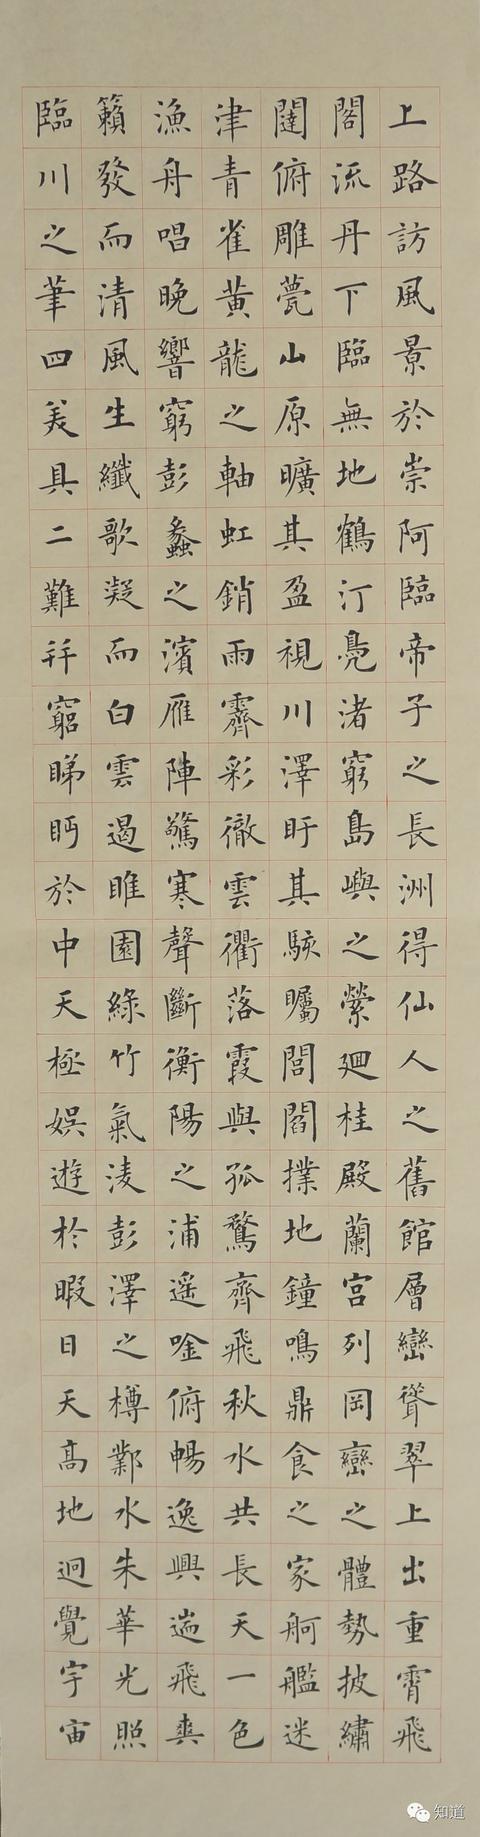 上路訪風景於崇阿臨帝子之長洲得仙人之舊館層巒聳翠上出重霄飛
閣流丹下臨無地鶴汀鳧渚窮島嶼之縈廻桂殿蘭宮列岡巒之體勢披繡
闥俯雕甍山原曠其盈視川澤盱其駭矚閭閻撲地鐘鳴鼎食之家舸艦迷
津青雀黃龍之軸虹銷雨霽彩徹雲衢落霞與孤鶩齊飛秋水共長天一色
漁舟唱晚響窮彭蠡之濱雁陣驚寒聲斷衡陽之浦遥唫俯暢逸興遄飛爽
籟發而清風生纖歌凝而白雲遏睢園綠竹氣淩彭澤之樽鄴水朱華光照
臨川之筆四美具二難幷窮睇眄於中天極娛遊於暇日天高地迥覺宇宙
知道